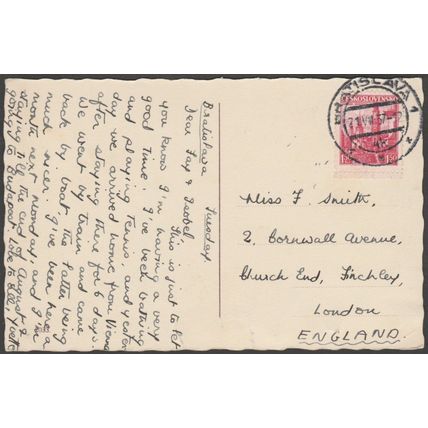 Bratislava Tuesday
Dear Fay & Isobel
This is just to let
you know I'm having a very
good time. I've been bathing
and playing tennis, and yester-
day we arrived home from Vienna
after staying there for 6 days.
We went by train and came
back by boat the latter being
much nicer. I've been here a
month next monday, and I'm
staying till the end of August &
going to Budapest. Love to all,
BRATISLAVA 1
ČESKOSLOVENSKO
Miss F. Smith,
2, Cornwall Avenue,
Church End, Finchley,
London
ENGLAND.